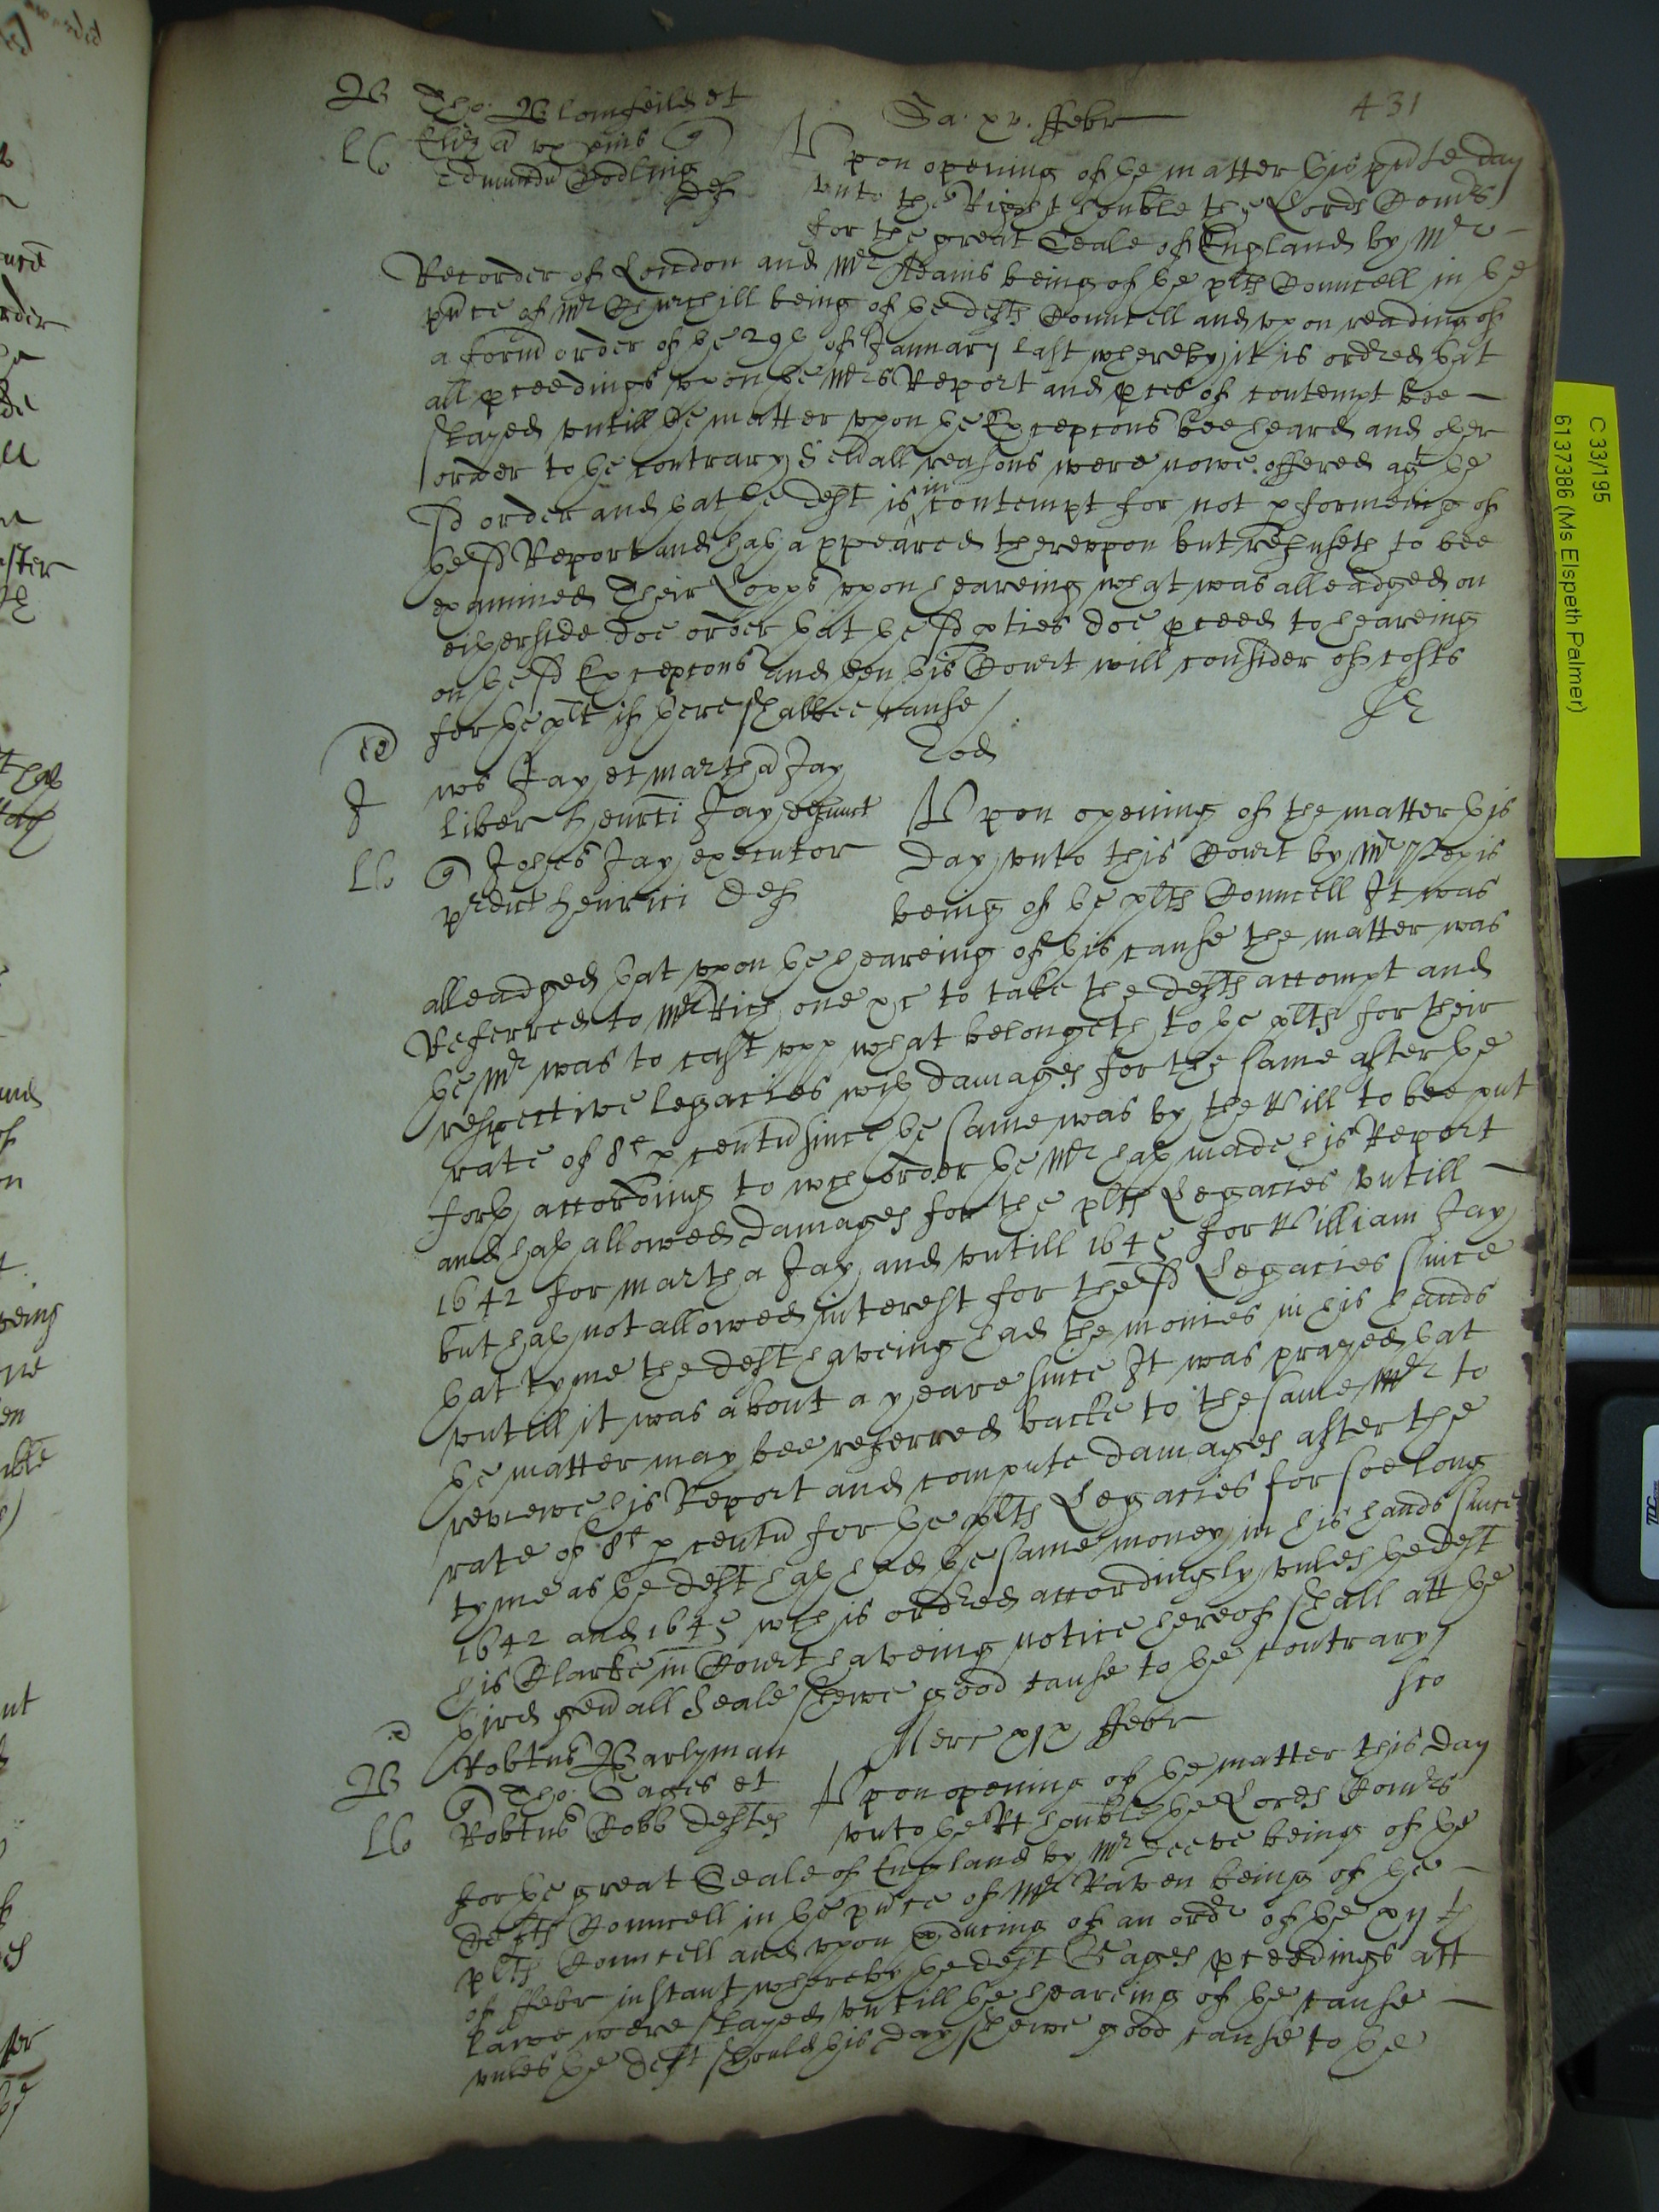 431
B Tho: Blomfeild et
Eliz a ux eius
Edmundu Codling
Def
Sa. xv. ffebr
Upon opening of ye matter this pnte day
unto the Right honble the Lords Comrs
for the great Seale of England by Mr
Recorder of London and Mr Adams being of ye plts Councell in ye
pnce of Mr Churchill being of ye defts Councell and upon reading of
a formr order of ye 29th of January last whereby it is ordred yat
all pceedings upon ye Mrs Report and pces of contempt bee
stayed untill ye matter upon ye Excepcons bee heard and other
order to ye contrary Seuall reasons were nowe offered agt ye
sd order and yat ye deft is in contempt for not pformeing of
ye sd Report and hath appeared thereupon but refuseth to bee
examined Their Lopps upon heareing what was alleadged on
either side doe order yat ye sd pties doe pceed to heareing
on ye sd Excepcons and then this Court will consider of costs
for ye plt if there shalbee cause
J
Ws Jay et Martha Jay
liber Henrici Jay defunct
Johes Jay executor
prdict Henrici Def
Eod
Upon opening of the matter this
day unto this Court by Mr Pepis
being of ye plts Councell It was
alleadged yat upon ye heareing of this cause the matter was
Referred to Mr Rich one &c to take the defts accompt and
ye Mr was to cast upp what belongeth to ye plts for their
respective legacies with damages for the same after ye
rate of 8l p centu since ye same was by the Will to bee put
forth according to wch order ye Mr hath made his Report
and hath allowed damages for the plts Legacies untill
1642 for Martha Jay and untill 1645 for William Jay
but hath not allowed interest for the sd Legacies since
that tyme the deft haveing had the monies in his hands
untill it was about a yeare since It was prayed yat
ye matter may bee referred backe to the same Mr to
reviewe his Report and compute damages after the
rate of 8l p centu for ye plts Legacies for soe long
tyme as ye deft hath had ye same money in his hands since
1642 and 1645 wch is ordred accordingly unles ye deft
his Clarke in Court haveing notice hereof shall att ye
third genall Seale shewe good cause to ye contrary
B
Robtus Barlyman
Tho: Gages et
Robtus Cobb Deftes
Merc xix ffebr
Upon opening of ye matter this day
unto ye Rt honble ye Lords Comrs
for ye great Seale of England by Mr being of ye
defts Councell in ye pnce of Mr Raven being of ye
plts Councell and upon pducing of an ordr of ye xijth
of ffebr instant whereby ye deft Gages pceedings att
lawe were stayed untill ye heareing of ye cause
unles ye deft should this day shewe good cause to ye
C 33/195
6137386 (Ms Elspeth Palmer)